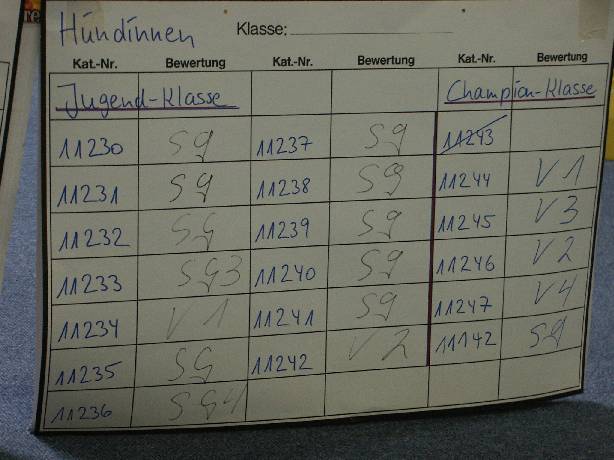 Hündinnen Klasse:
Kat.-Nr. Bewertung Kat.-Nr. Bewertung Kat.-Nr. Bewertung
Jugend-Klasse Champion-Klasse
11230 sg 11237 sg 11243
11231 sg 11238 sg 11244 V1
11232 SG 11239 sg 11245 V3
11233 SG3 11240 sg 11246 V2
11234 V1 11241 sg 11247 V4
11235 SG 11242 V2 11142 sg
11236 SG4